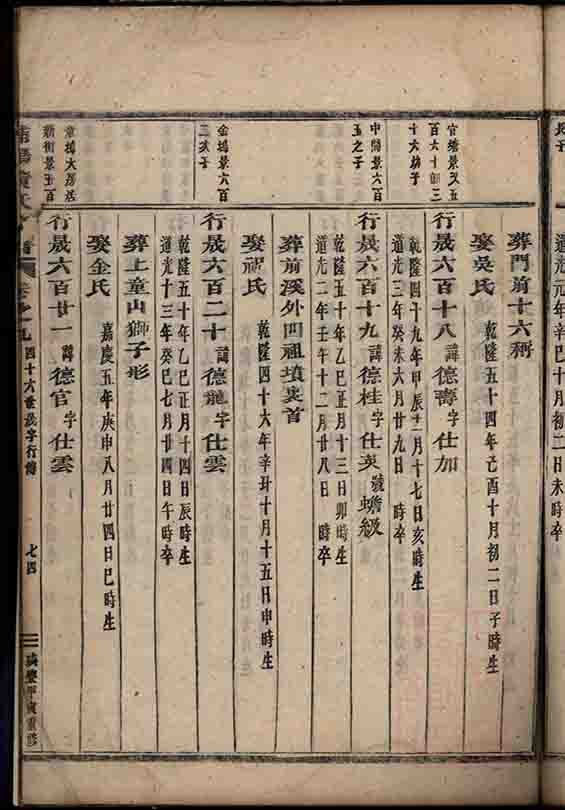 長子
官塘景又五
百六十御三
十六幼子
中開景六百
五之子
金塘景六百
三次子
葬門前十六稱
娶吳氏 乾隆五十四年己酉十月初二日子時生
行晟六百十八 諱德壽字仕加
乾隆四十九年甲辰十二月十七日亥時生
道光三年癸未六月廿九日 時卒
行晟六百十九 諱德桂字仕英 號蟾級
乾隆五十年乙巳正月十三日卯時生
道光二年壬午十二月廿八日 時卒
葬前溪外四祖墳裏首
娶祝氏 乾隆四十六年辛丑十月十五日申時生
行晟六百二十 諱德龍字仕雲
乾隆五十年乙巳正月十四日辰時生
道光十三年癸巳七月廿四日午時卒
葬上童山獅子形
娶金氏 嘉慶五年庚申八月廿四日巳時生
行晟六百廿一 諱德官字仕雲
四十六世晟字行傳
七四
咸豐甲寅重修